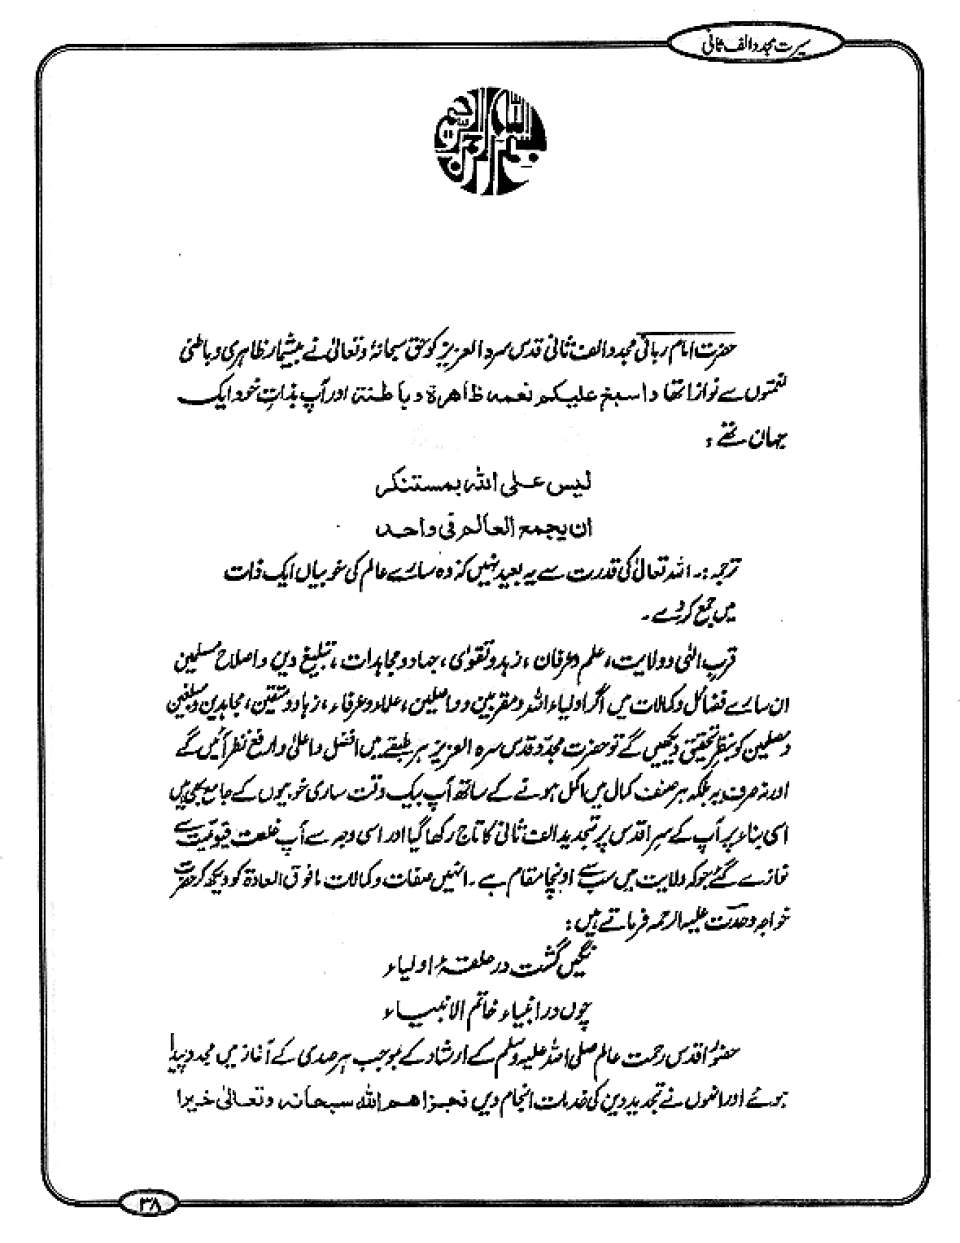 سیرت مجدد الف ثانی
بسم اللہ الرحمن الرحیم
حضرت امام ربانی مجدد الف ثانی قدس سرہ العزیز کو حق سبحانہٗ وتعالیٰ نے بیشمار ظاہری و باطنی
نعمتوں سے نوازا تھا واسبغ علیکم نعمہ ظاھرۃ وباطنۃ اور آپ بذاتِ خود ایک
جہان تھے :
لیس علی اللہ بمستنکر
ان یجمع العالم فی واحد
ترجمہ :۔ اللہ تعالیٰ کی قدرت سے یہ بعید نہیں کہ وہ سارے عالم کی خوبیاں ایک ذات
میں جمع کر دے ۔
قربِ الٰہی و ولایت، علم و عرفان، زہد و تقویٰ، جہاد و مجاہدات، تبلیغِ دین و اصلاحِ مسلمین
ان سارے فضائل و کمالات میں اگر اولیاء اللہ و مقربین و واصلین، علماء و عرفاء، زہاد و متقین، مجاہدین و مبلغین
و مصلحین کو بنظرِ تحقیق دیکھیں گے تو حضرت مجدد قدس سرہ العزیز ہر طبقے میں افضل و اعلیٰ و ارفع نظر آئیں گے
اور نہ صرف یہ بلکہ ہر صنفِ کمال میں اکمل ہونے کے ساتھ آپ بیک وقت ساری خوبیوں کے جامع بھی ہیں
اسی بناء پر آپ کے سرِ اقدس پر تجدیدِ الف ثانی کا تاج رکھا گیا اور اسی وجہ سے آپ خلعتِ قیومیت سے
نوازے گئے جو کہ ولایت میں سب سے اونچا مقام ہے۔ انہیں صفات و کمالات مافوق العادۃ کو دیکھ کر حضرت
خواجہ وحدت علیہ الرحمہ فرماتے ہیں :
نگیں گشت در حلقۂ اولیاء
چوں در انبیاء خاتم الانبیاء
حضور اقدس رحمت عالم صلی اللہ علیہ وسلم کے ارشاد کے بموجب ہر صدی کے آغاز میں مجدد پیدا
ہوئے اور انھوں نے تجدید دین کی خدمات انجام دیں فجزاھم اللہ سبحانہ وتعالیٰ خیرا
۳۸